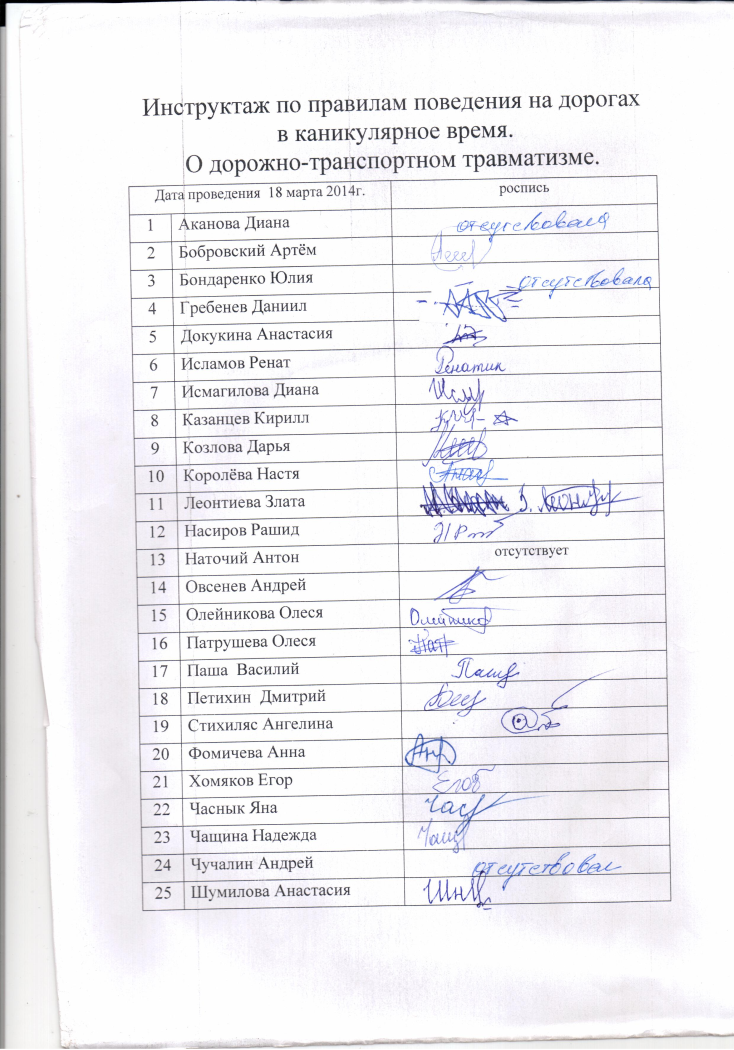 Инструктаж по правилам поведения на дорогах
в каникулярное время.
О дорожно-транспортном травматизме.
Дата проведения 18 марта 2014г. роспись
1 Аканова Диана отсутствовала
2 Бобровский Артём
3 Бондаренко Юлия отсутствовала
4 Гребенев Даниил
5 Докукина Анастасия
6 Исламов Ренат Ренатик
7 Исмагилова Диана
8 Казанцев Кирилл
9 Козлова Дарья
10 Королёва Настя
11 Леонтиева Злата
12 Насиров Рашид
13 Наточий Антон отсутствует
14 Овсенев Андрей
15 Олейникова Олеся
16 Патрушева Олеся
17 Паша Василий
18 Петихин Дмитрий
19 Стихиляс Ангелина
20 Фомичева Анна
21 Хомяков Егор
22 Часнык Яна
23 Чащина Надежда
24 Чучалин Андрей отсутствовал
25 Шумилова Анастасия